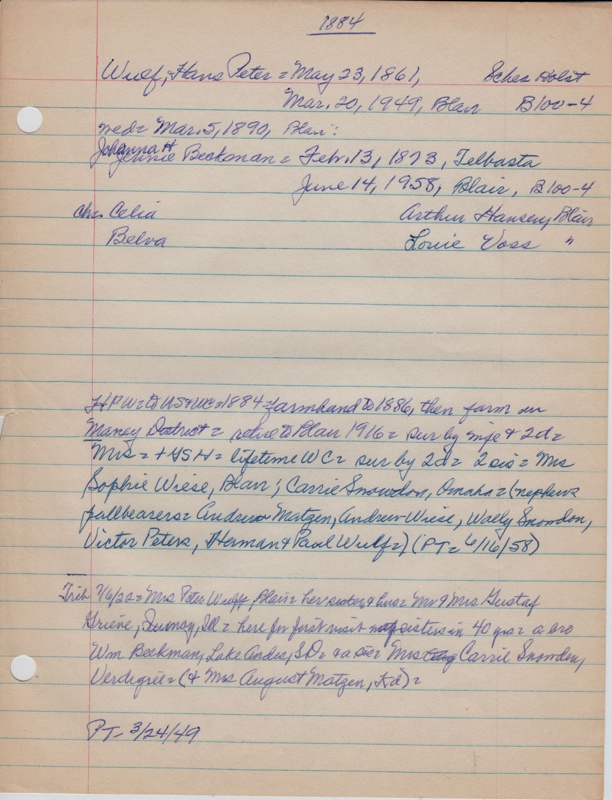 1884
Wulf, Hans Peter = May 23, 1861, Sches Holst
Mar. 20, 1949, Blair B100-4
med = Mar. 5, 1890, Blair:
Johanna H
Jennie Beckman = Feb. 13, 1873, Telbasta
June 14, 1958, Blair, B100-4
chs Celia Arthur Hansen, Blair
Belva Louie Voss "
HPW = to US & WC = 1884 = farmhand to 1886, then farm in
Maney District = retire to Blair 1916 = sur by wife & 2d =
Mrs = = lifetime WC = sur by 2d = 2 sis = Mrs
Sophie Wiese, Blair; Carrie Snowdon, Omaha = (nephews
pallbearers = Andrew Matzen, Andrew Wiese, Wally Snowdon,
Victor Peters, Herman & Paul Wulf =) (PT = 6/16/58)
Trib 7/6/22 = Mrs Peter Wulff, Blair = her sister & hus = Mr & Mrs Gustaf
Grieve, SD = here for first visit sisters in 40 yrs = a bro
Wm Beckman, Lake Andes, SD = & a sis = Mrs Carrie Snowdon,
Verdigree = (& Mrs August Matzen, Kd) =
PT - 3/24/49